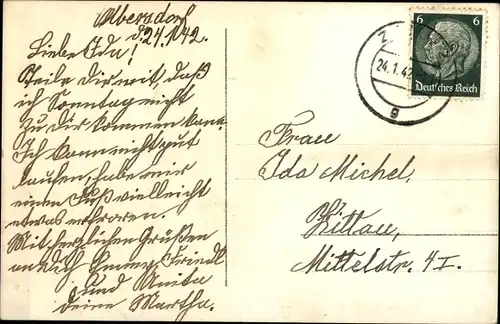 Olbersdorf
d. 24.1.42.
Liebe Ida!
Teile Dir mit, daß
ich Sonntag nicht
zu Dir kommen kann.
Ich kann nicht gut
laufen, habe mir
einen Fuß vielleicht
etwas erfroren.
Mit herzlichen Grüßen
an Dich Emmy, Friedl
und Anita
Deine Martha.
6 6
Deutsches Reich
24.1.42
g
Frau
Ida Michel,
Zittau,
Mittelstr. 4 I.